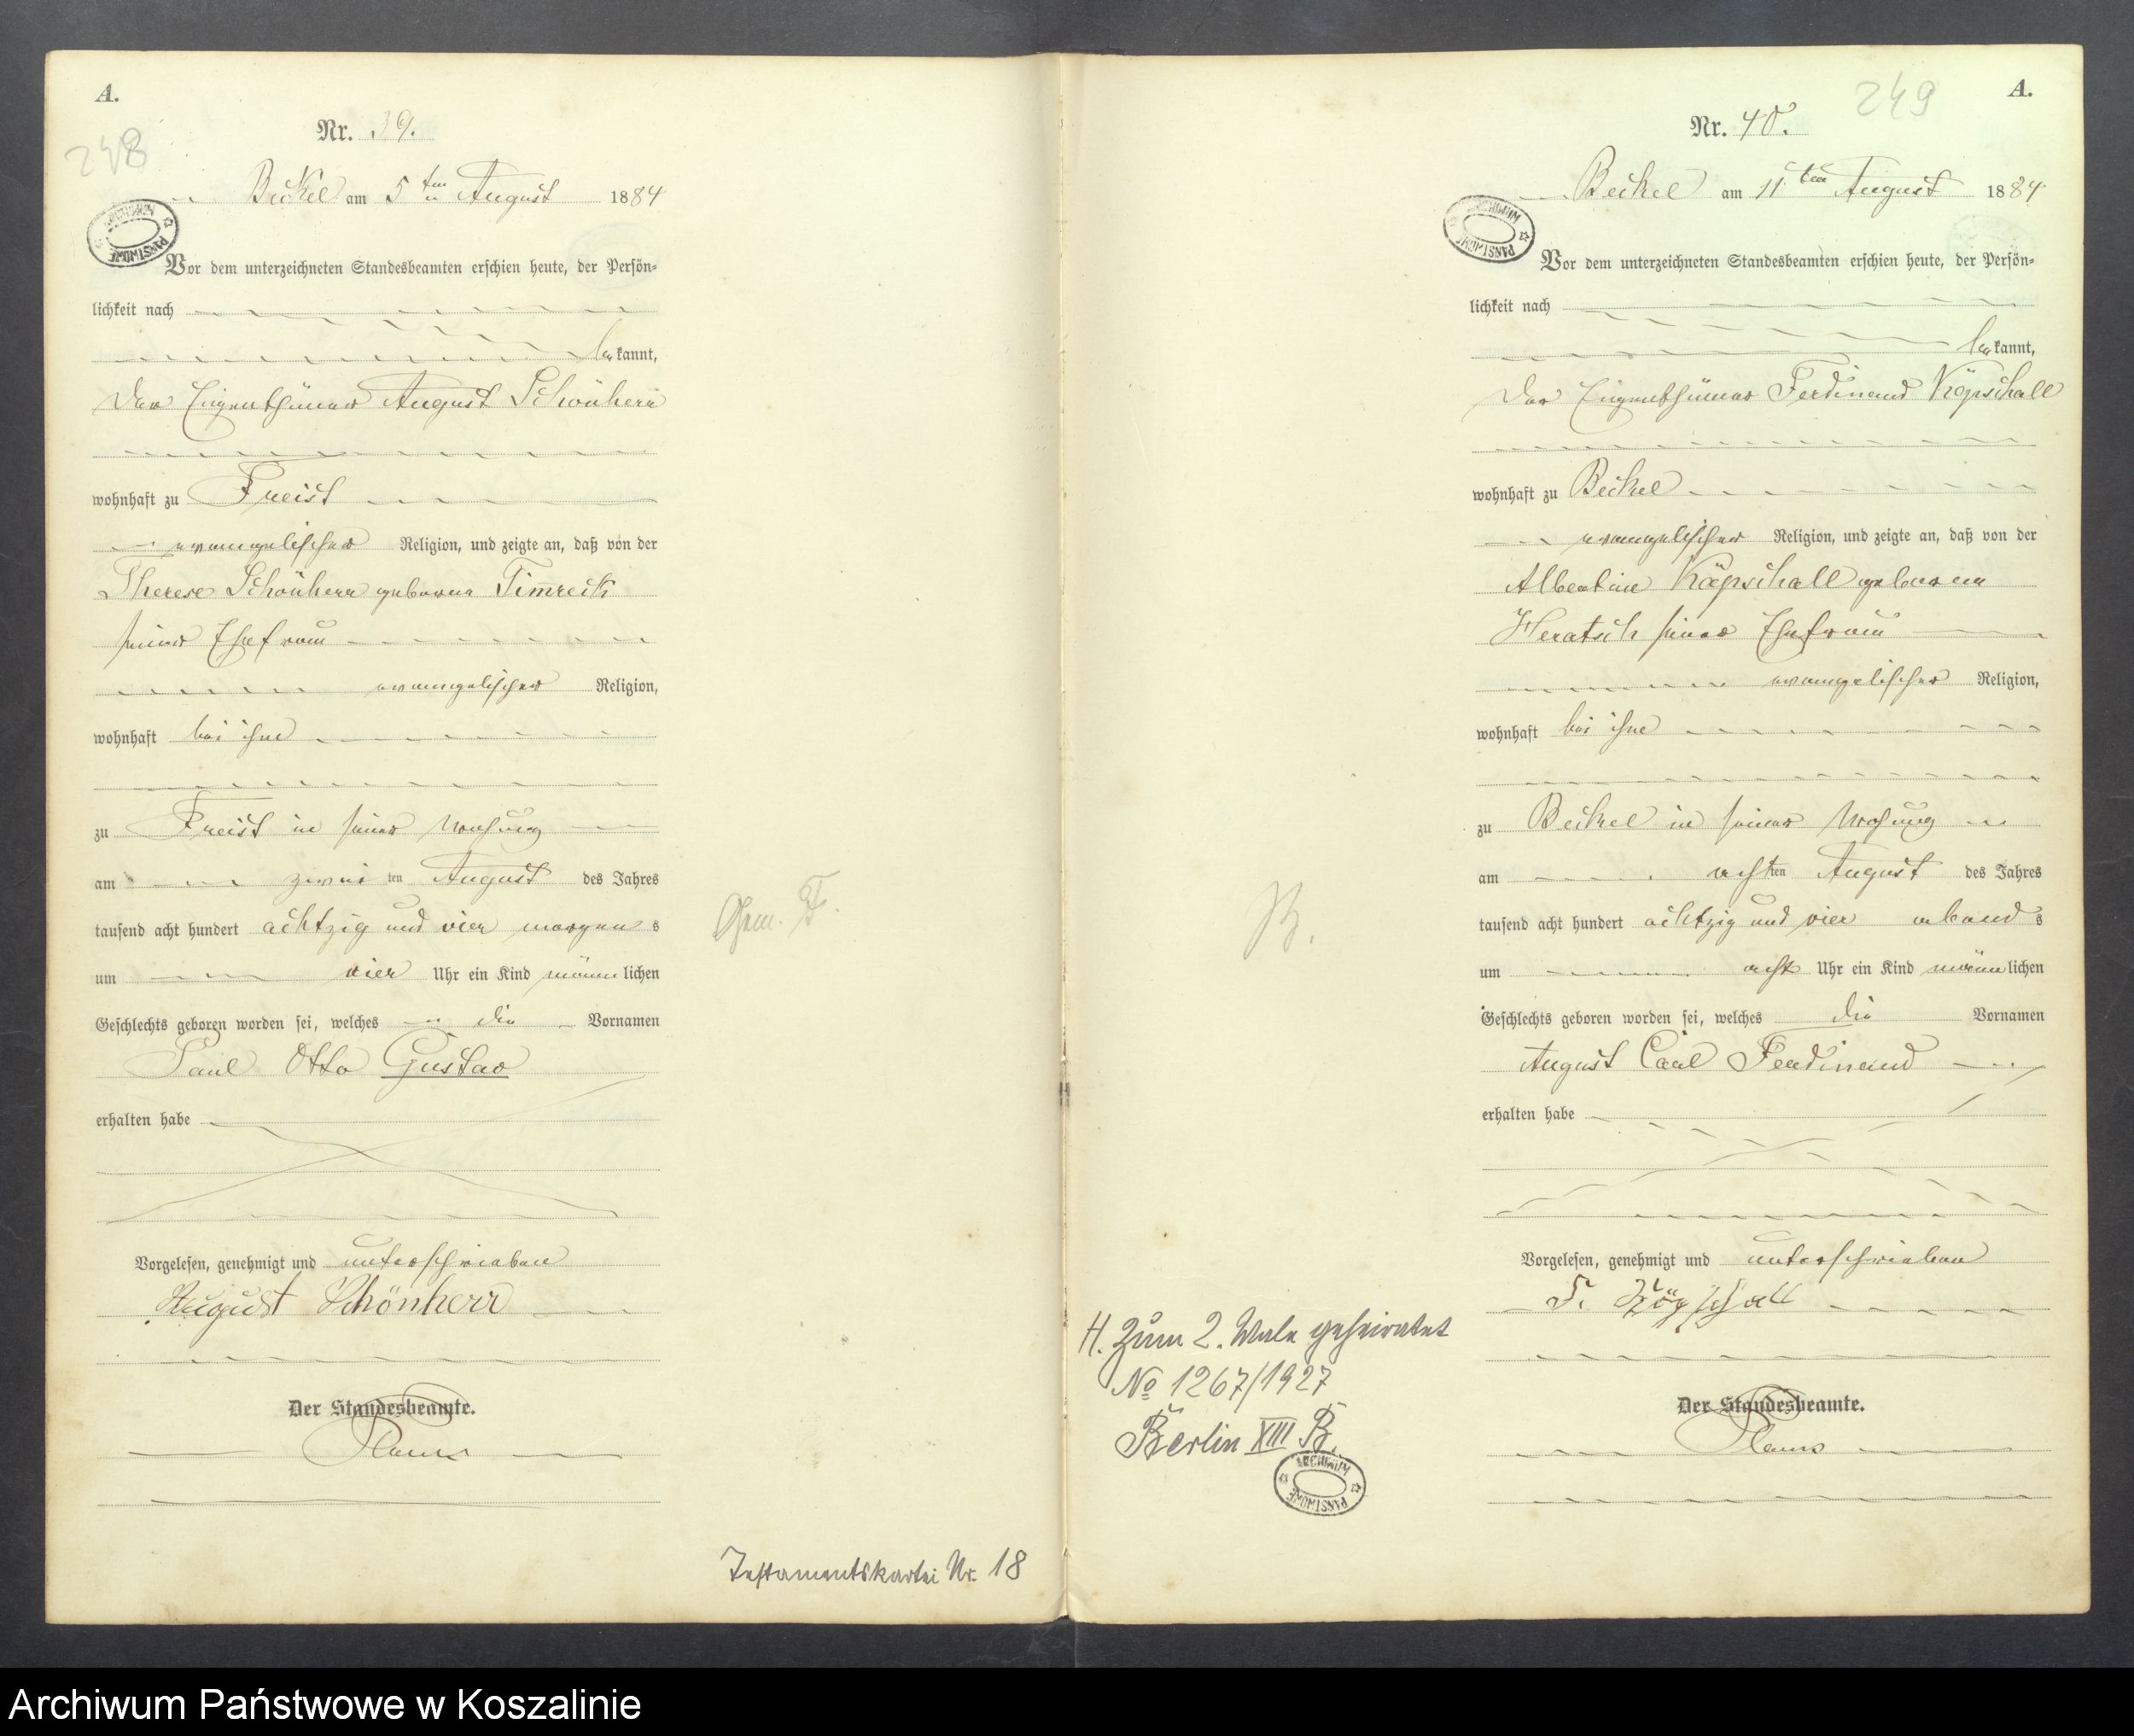 A.
248
Nr. 39.
Beckel am 5ten August 1884
ARCHIWUM PAŃSTWOWE
Vor dem unterzeichneten Standesbeamten erschien heute, der Persön-
lichkeit nach
bekannt,
der Eigenthümer August Schönherr
wohnhaft zu Freist
evangelischer Religion, und zeigte an, daß von der
Therese Schönherr geborene Tim̅reck
seiner Ehefrau
evangelischer Religion,
wohnhaft bei ihm
zu Freist in seiner Wohnung
am zweiten August des Jahres
tausend acht hundert achtzig und vier morgens
um vier Uhr ein Kind männlichen
Geschlechts geboren worden sei, welches die Vornamen
Paul Otto Gustav
erhalten habe
Vorgelesen, genehmigt und unterschrieben
August Schönherr
Der Standesbeamte.
Gem. F.
Testamentskartei Nr. 18
249
A.
Nr. 40.
Beckel am 11ten August 1884
ARCHIWUM PAŃSTWOWE
Vor dem unterzeichneten Standesbeamten erschien heute, der Persön-
lichkeit nach
bekannt,
der Eigenthümer Ferdinand Köpschall
wohnhaft zu Beckel
evangelischer Religion, und zeigte an, daß von der
Albertine Köpschall geborenen
Heratsch seiner Ehefrau
evangelischer Religion,
wohnhaft bei ihm
zu Beckel in seiner Wohnung
am achten August des Jahres
tausend acht hundert achtzig und vier abends
um acht Uhr ein Kind männlichen
Geschlechts geboren worden sei, welches die Vornamen
August Carl Ferdinand
erhalten habe
Vorgelesen, genehmigt und unterschrieben
F. Köpschall
Der Standesbeamte.
B.
H. Zum 2. Male geheiratet
No 1267/1927
Berlin XIII B.
ARCHIWUM PAŃSTWOWE
Archiwum Państwowe w Koszalinie